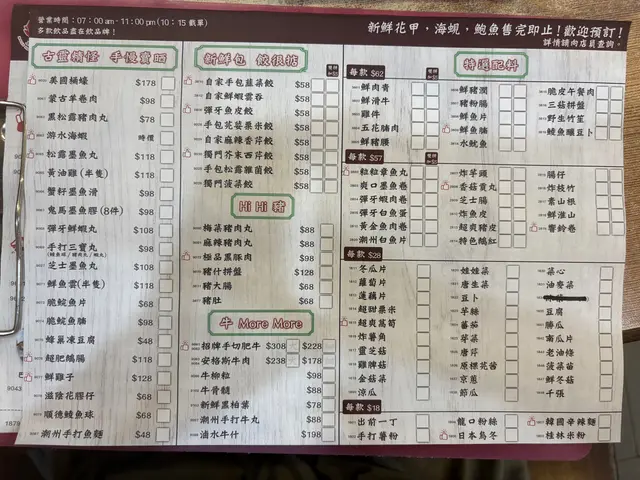 營業時間：07：00 am - 11：00 pm (10：15 截單)
多款飲品盡在飲品牌！
新鮮花甲，海蜆，鮑魚售完即止！歡迎預訂！
詳情請向店員查詢。
古靈精怪 手慢賣晒
美國桶蠔 $178
蒙古羊卷肉 $98
黑松露豬肉丸 $78
游水海蝦 時價
松露墨魚丸 $118
黃油雞(半隻) $118
蟹籽墨魚滑 $98
鬼馬墨魚膠(8件) $98
彈牙鮮蝦丸 $98
手打三寶丸 $98
(鯪魚球/豬肉丸/蝦丸)
芝士墨魚丸 $108
鮮魚雲(半隻) $118
脆脘魚片 $68
脆脘魚腩 $98
蜂巢凍豆腐 $48
超肥鵝腸 $118
鮮雞子 $128
滋陰花膠仔 $68
順德鯪魚球 $68
潮州手打魚麵 $48
新鮮包 餃很掂
自家手包韮菜餃 $58
自家鮮蝦雲吞 $58
彈牙魚皮餃 $58
手包芫荽粟米餃 $58
自家麻辣香芹餃 $58
獨門芥末西芹餃 $58
手包松露雜菌餃 $58
獨門菠菜餃 $58
Hi Hi 豬
梅菜豬肉丸 $88
麻辣豬肉丸 $88
極品黑豚肉 $98
豬什拼盤 $128
豬大腸 $68
豬肚 $68
牛 More More
招牌手切肥牛 $308 $228
安格斯牛肉 $238 $178
牛柳粒 $98
牛骨髓 $88
新鮮黑柏葉 $78
潮州手打牛丸 $88
滷水牛什 $198
特選配料
每款 $62
鮮肉青
鮮滑牛
雞件
五花腩肉
鮮豬腰
鮮豬潤
豬粉腸
鮮魚片
鮮魚腩
水魷魚
脆皮午餐肉
三菇拼盤
野生竹笙
鯪魚釀豆卜
每款 $57
粒粒章魚丸
爽口墨魚卷
彈牙蝦肉卷
彈牙白魚蛋
黃金魚肉卷
潮州白魚片
炸芋頭
香菇貢丸
芝士腸
炸魚皮
超爽豬皮
特色鵝紅
腸仔
炸枝竹
素山根
鮮淮山
響鈴卷
每款 $28
冬瓜片
蘿蔔片
蓮藕片
超甜粟米
超爽萵筍
炸薯角
靈芝菇
雞脾菇
金菇菜
涼瓜
娃娃菜
唐生菜
豆卜
芋絲
蕃茄
芽菜
唐芹
原棵花茜
京蔥
節瓜
菜心
油麥菜
豆腐
勝瓜
南瓜片
老油條
菠菜苗
鮮冬菇
千張
每款 $18
出前一丁
手打薯粉
龍口粉絲
日本烏冬
韓國辛辣麵
桂林米粉